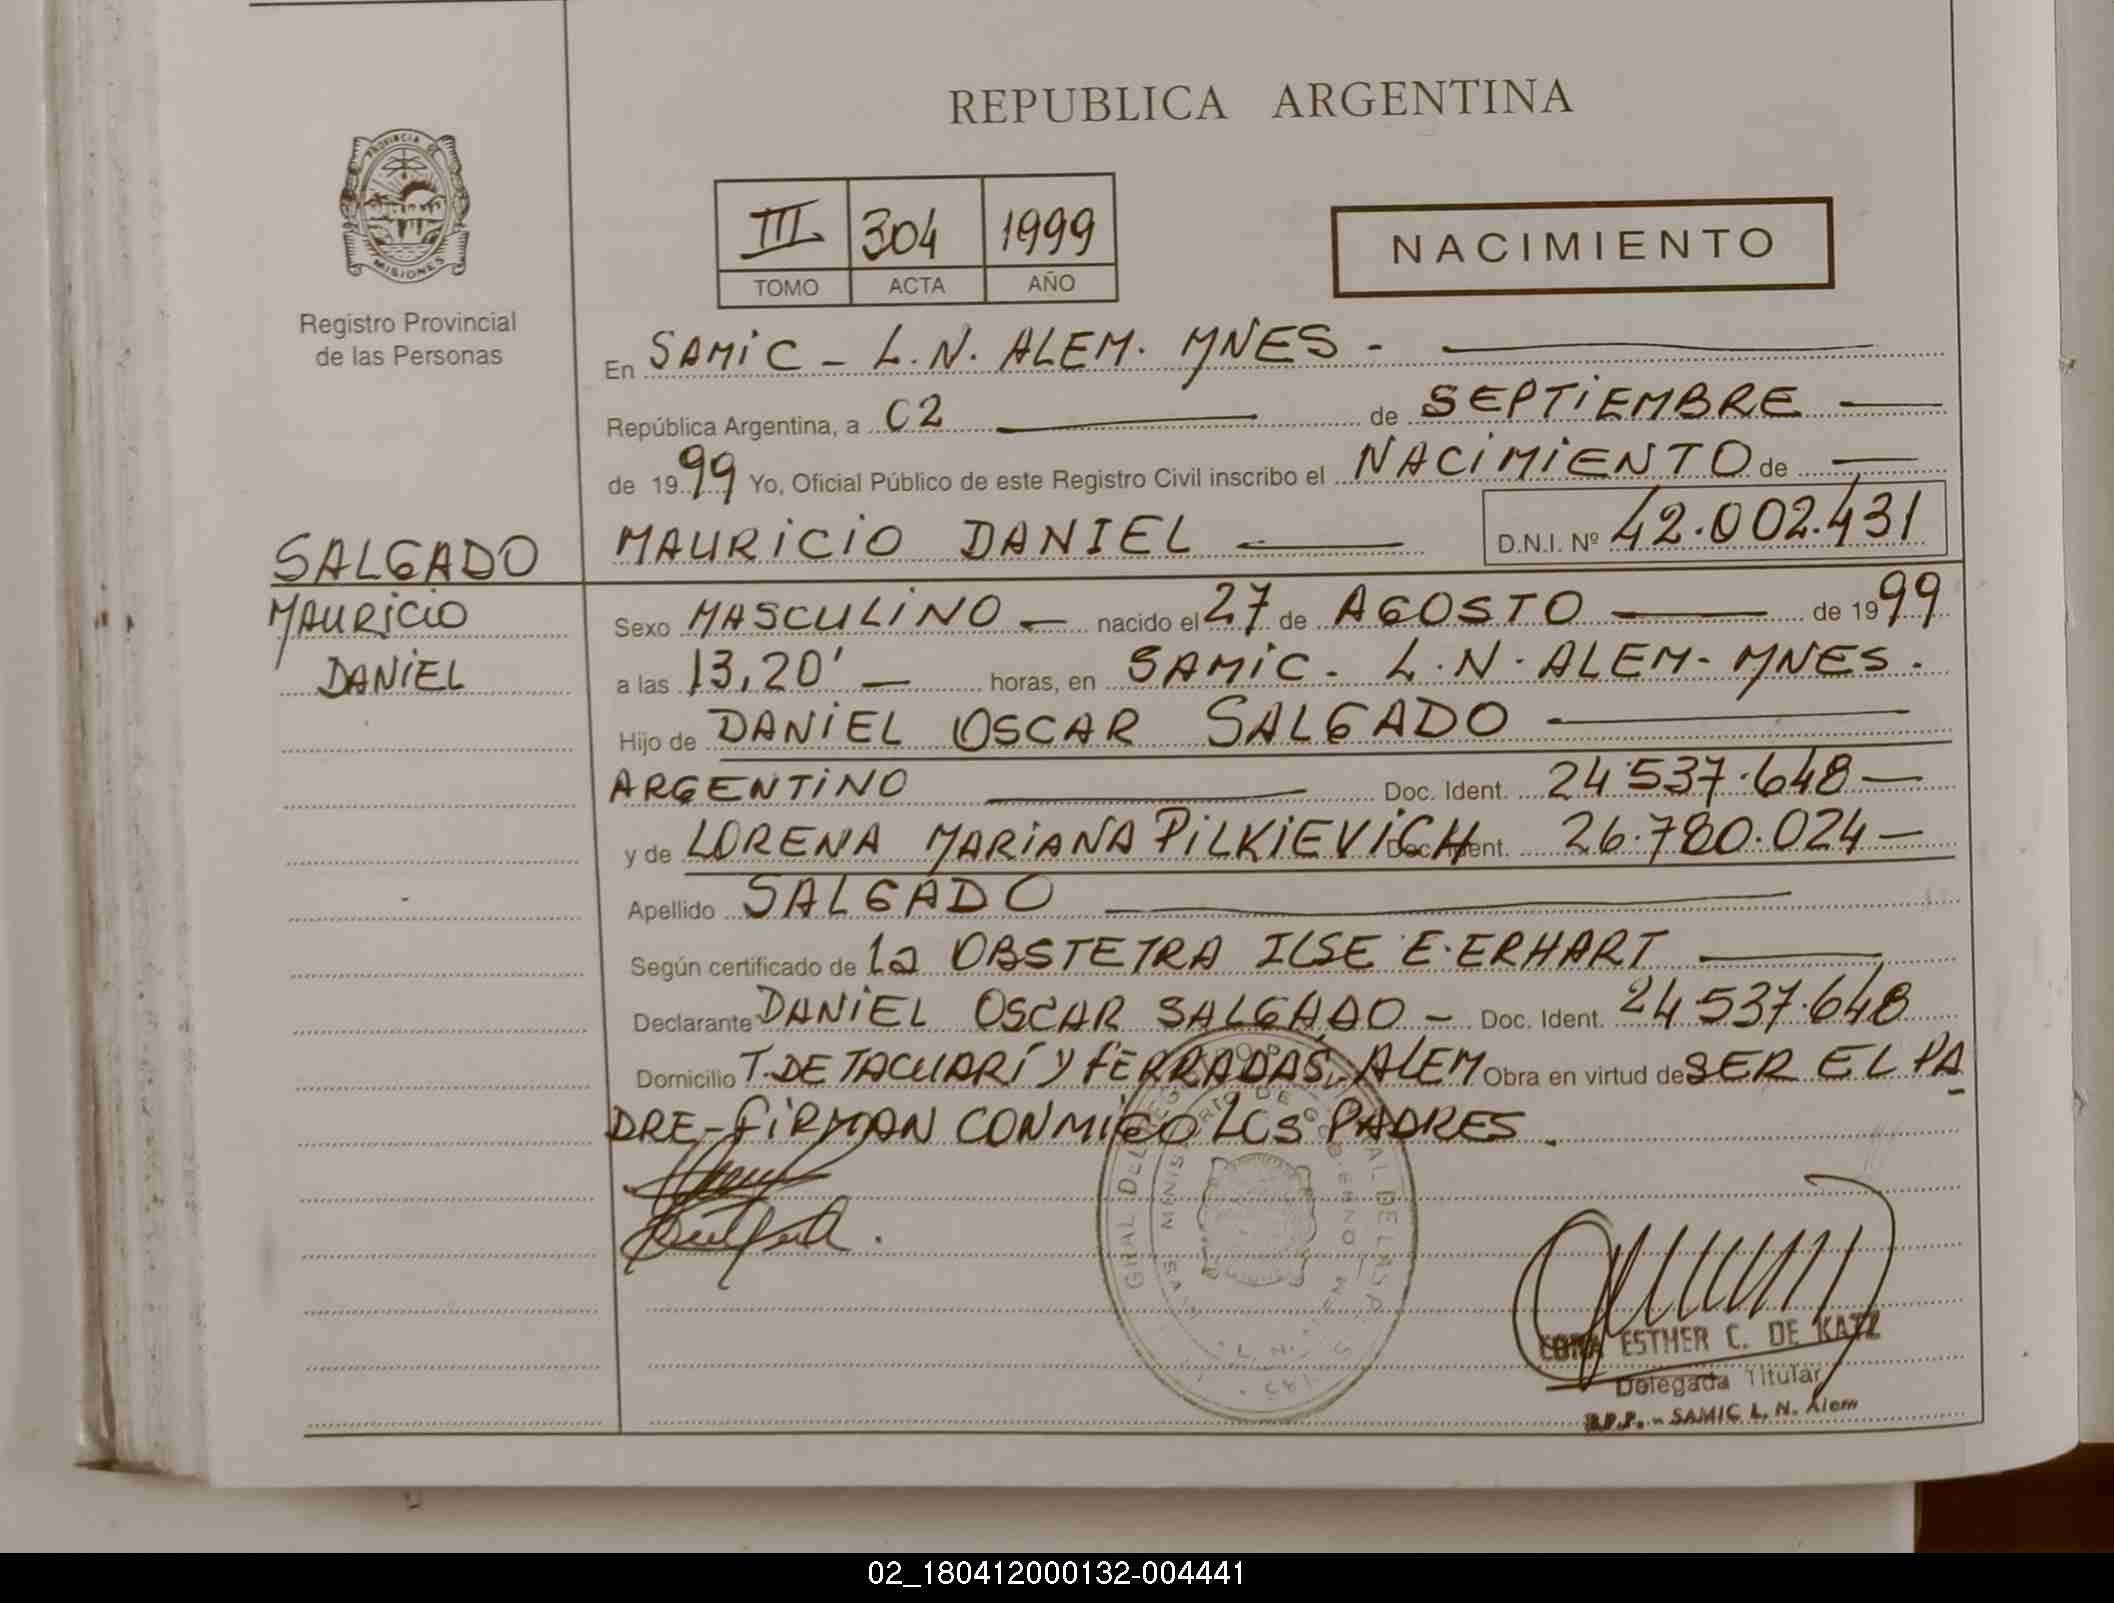 REPUBLICA ARGENTINA
PROVINCIA DE
MISIONES
Registro Provincial
de las Personas
III 304 1999
TOMO ACTA AÑO
NACIMIENTO
En SAMiC - L.N. ALEM. MNES -
República Argentina, a 02 de SEPTiEMBRE
de 1999 Yo, Oficial Público de este Registro Civil inscribo el NACiMiENTO de
MAURiCiO DANIEL D.N.I. Nº 42.002.431
SALGADO
MAURiCiO
DANiEL
Sexo MASCULiNO nacido el 27 de AGOSTO de 1999
a las 13,20' horas, en SAMiC - L.N. ALEM - MNES.
Hijo de DANiEL OSCAR SALGADO
ARGENTiNO Doc. Ident. 24.537.648
y de LORENA MARiANA PiLKiEViCH Doc. Ident. 26.780.024
Apellido SALGADO
Según certificado de La OBSTETRA ILSE E. ERHART
Declarante DANiEL OSCAR SALGADO - Doc. Ident. 24.537.648
Domicilio T. DE TACUARÍ y FERRADAS, ALEM Obra en virtud de SER EL PA
DRE - FiRMAN CONMiGO LOS PADRES.
ESTHER C. DE KATZ
Delegada Titular
SAMIC L. N. Alem
02_180412000132-004441